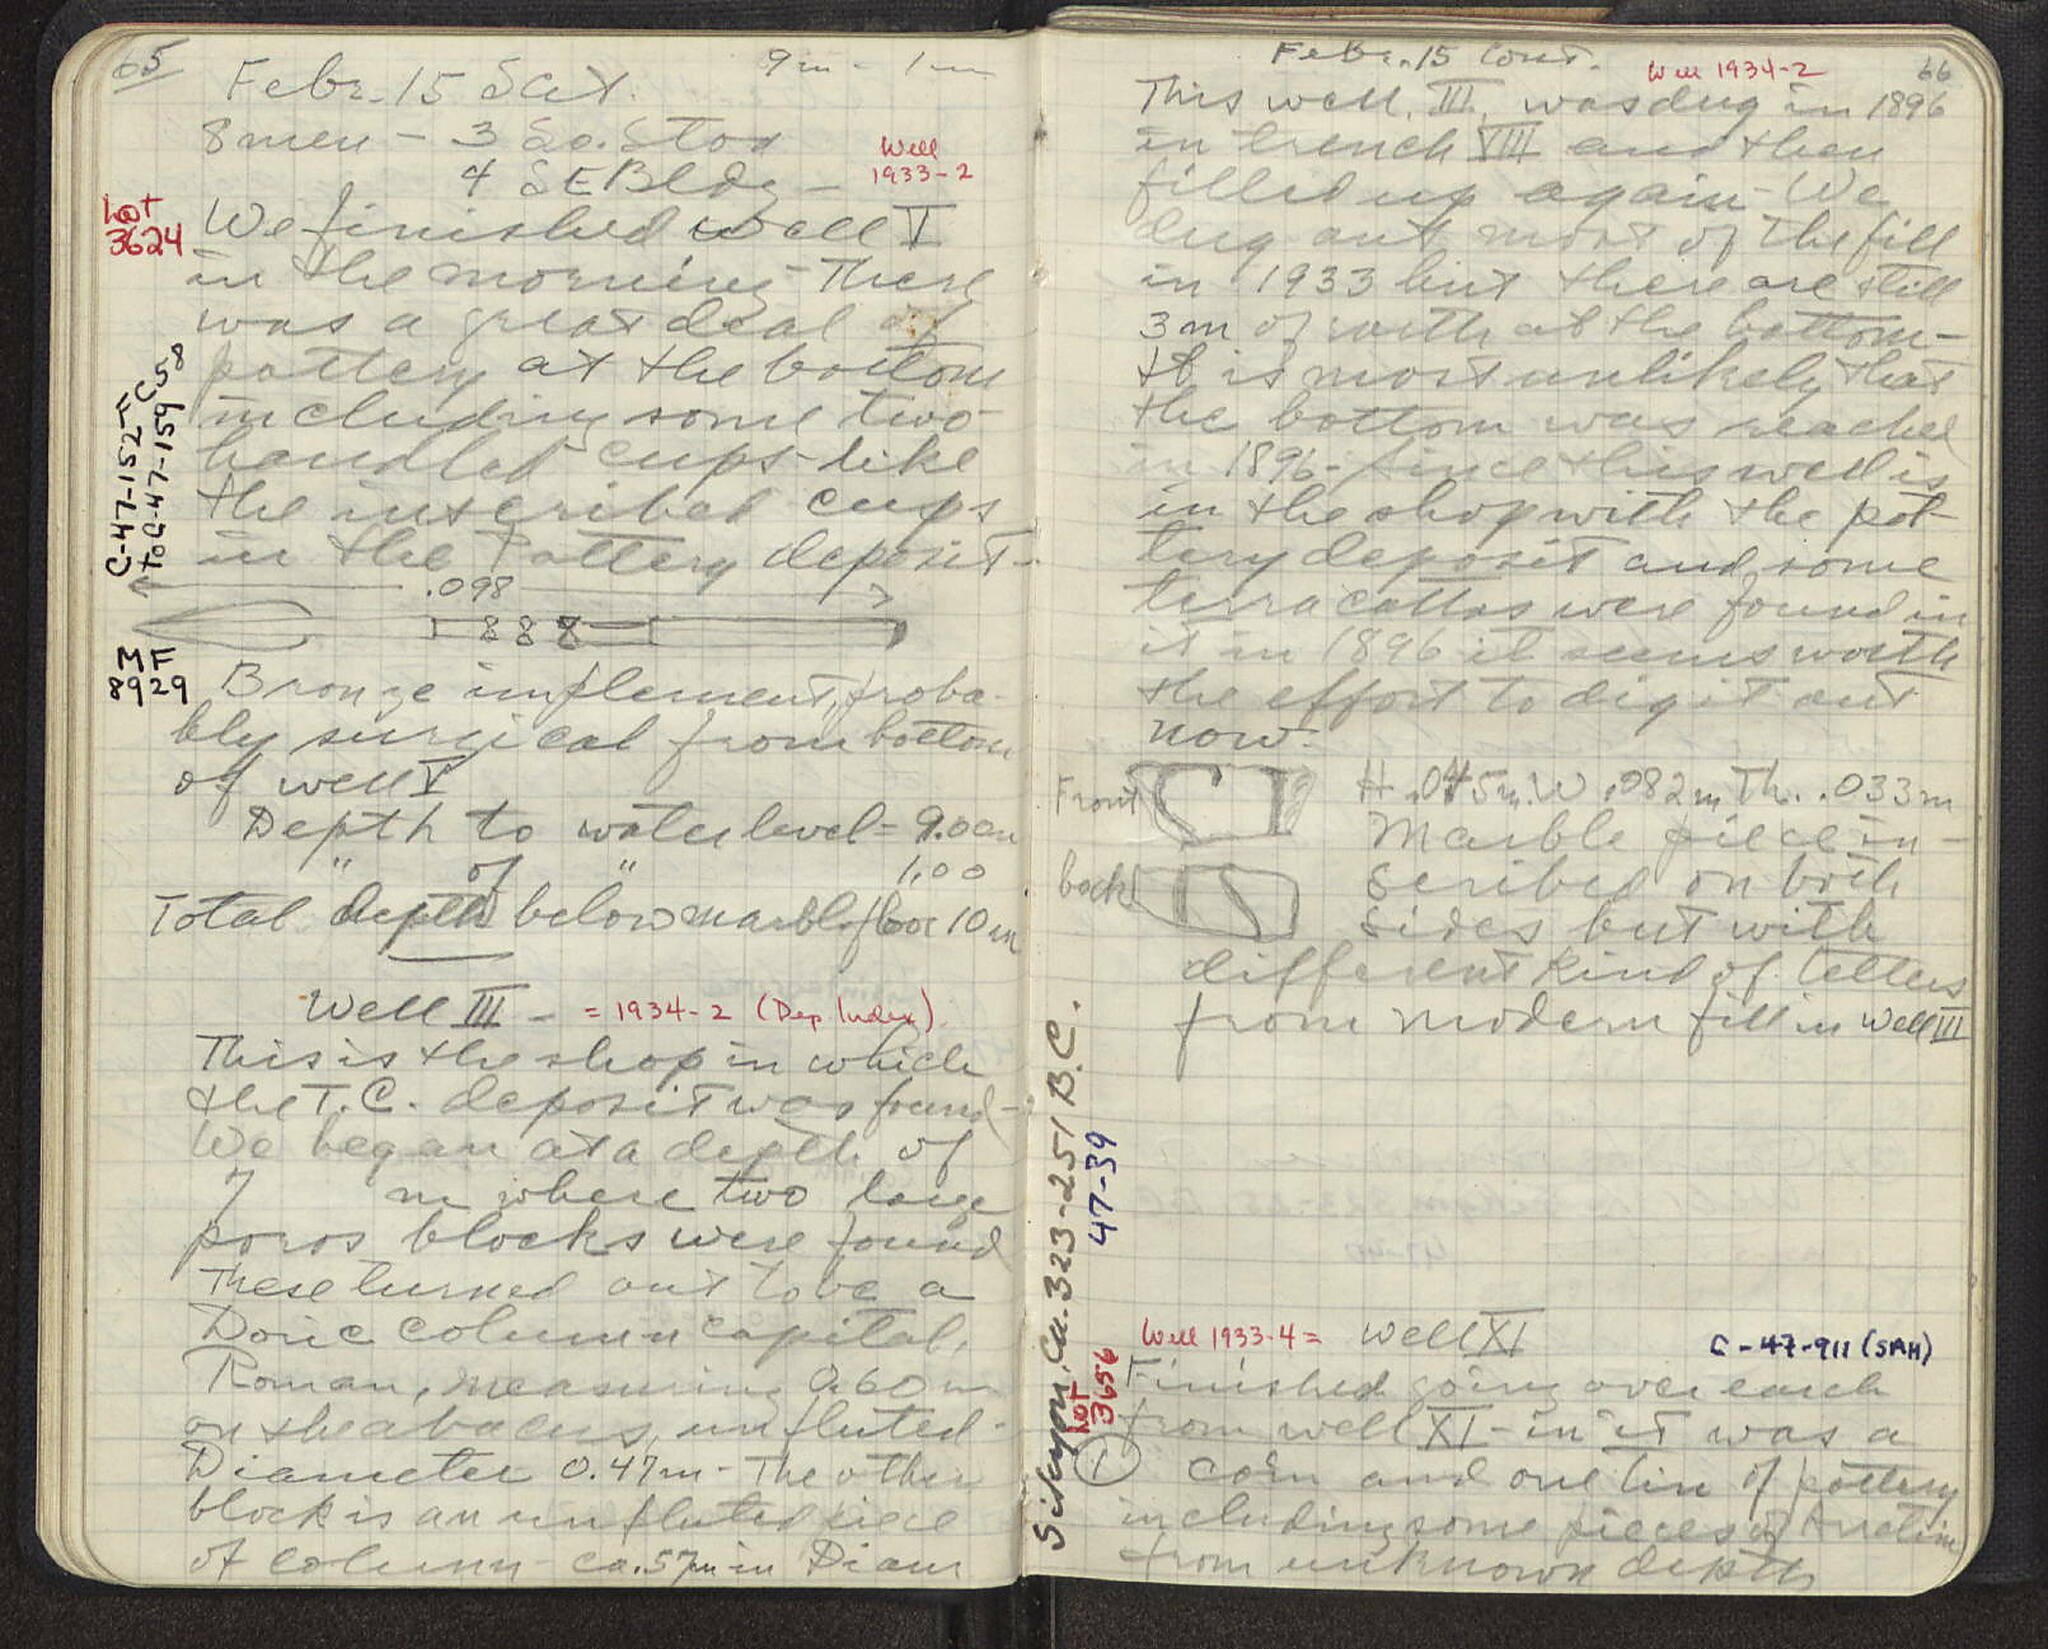 65
Febr. 15 Sat. 9m - 1m
8 men - 3 So. Stoa
4 SE Bldg -
Well
1933-2
Lot
3624
We finished well V
in the morning - There
was a great deal of
pottery at the bottom
including some two
handled cups like
the inscribed cups
in the Pottery deposit -
C-47-152
to C-47-159
C 58
.098
MF
8929
Bronze implement, proba-
bly surgical from bottom
of well V
Depth to water level = 9.00m
" of " 1.00
Total depth below marble floor 10 m
Well III - = 1934-2 (Dep Index)
This is the shop in which
the T.C. deposit was found -
We began at a depth of
7 m where two large
poros blocks were found
These turned out to be a
Doric column capital,
Roman, measuring 0.60 m
on the abacus, unfluted -
Diameter 0.47m - The other
block is an unfluted piece
of column - ca. 57m in Diam
Febr. 15 Cont.
Well 1934-2
66
This well, III, was dug in 1896
in trench VIII and then
filled up again - We
dug out most of the fill
in 1933 but there are still
3 m of earth at the bottom -
It is most unlikely that
the bottom was reached
in 1896 - Since this well is
in the shop with the pot-
tery deposit and some
terracottas were found in
it in 1896 it seems worth
the effort to dig it out
now.
Front
H .045m. W .082m Th. .033m
Marble piece in-
back
scribed on both
sides but with
different kind of letters
from modern fill in Well III
Sikyon, Ca. 323-251 B.C.
47-39
Well 1933-4 = Well XI
C-47-911 (SAH)
Lot
3656
Finished going over earth
from well XI - in it was a
1 coin and one tin of pottery
including some pieces of Arretine
from unknown depth